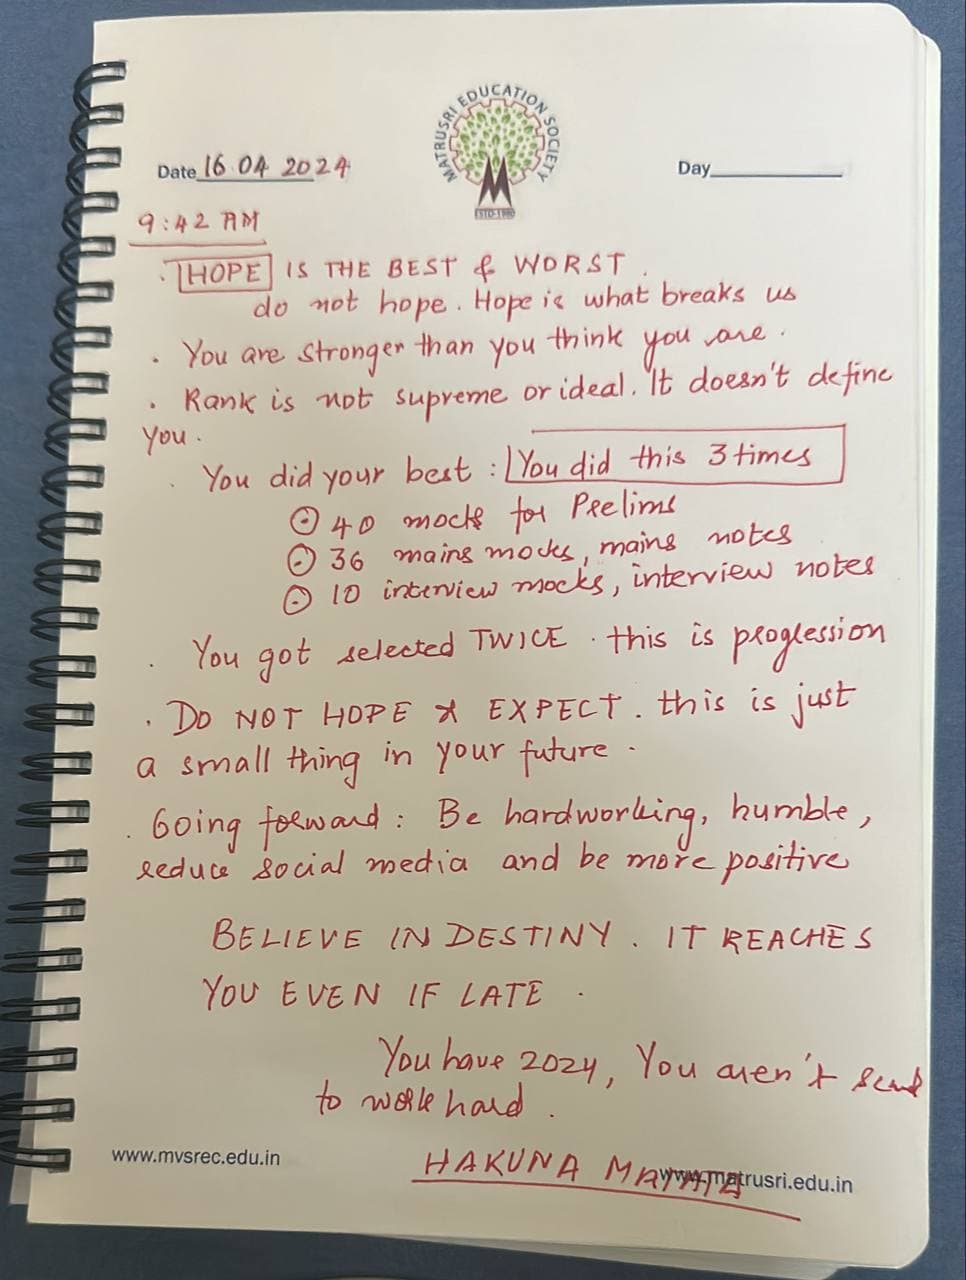 MATRUSRI EDUCATION SOCIETY
ESTD-1980
Date 16.04 2024
Day
9:42 AM
. HOPE IS THE BEST & WORST.
do not hope. Hope is what breaks us
. You are stronger than you think you are.
. Rank is not supreme or ideal. It doesn't define
you.
. You did your best : You did this 3 times
40 mocks for Prelims
36 mains mocks, mains notes
10 interview mocks, interview notes
. You got selected TWICE. this is progression
. DO NOT HOPE & EXPECT. this is just
a small thing in your future.
. Going forward: Be hardworking, humble,
reduce social media and be more positive
BELIEVE IN DESTINY. IT REACHES
YOU EVEN IF LATE.
You have 2024, You aren't
to work hard.
HAKUNA MATATA
www.mvsrec.edu.in
www.matrusri.edu.in